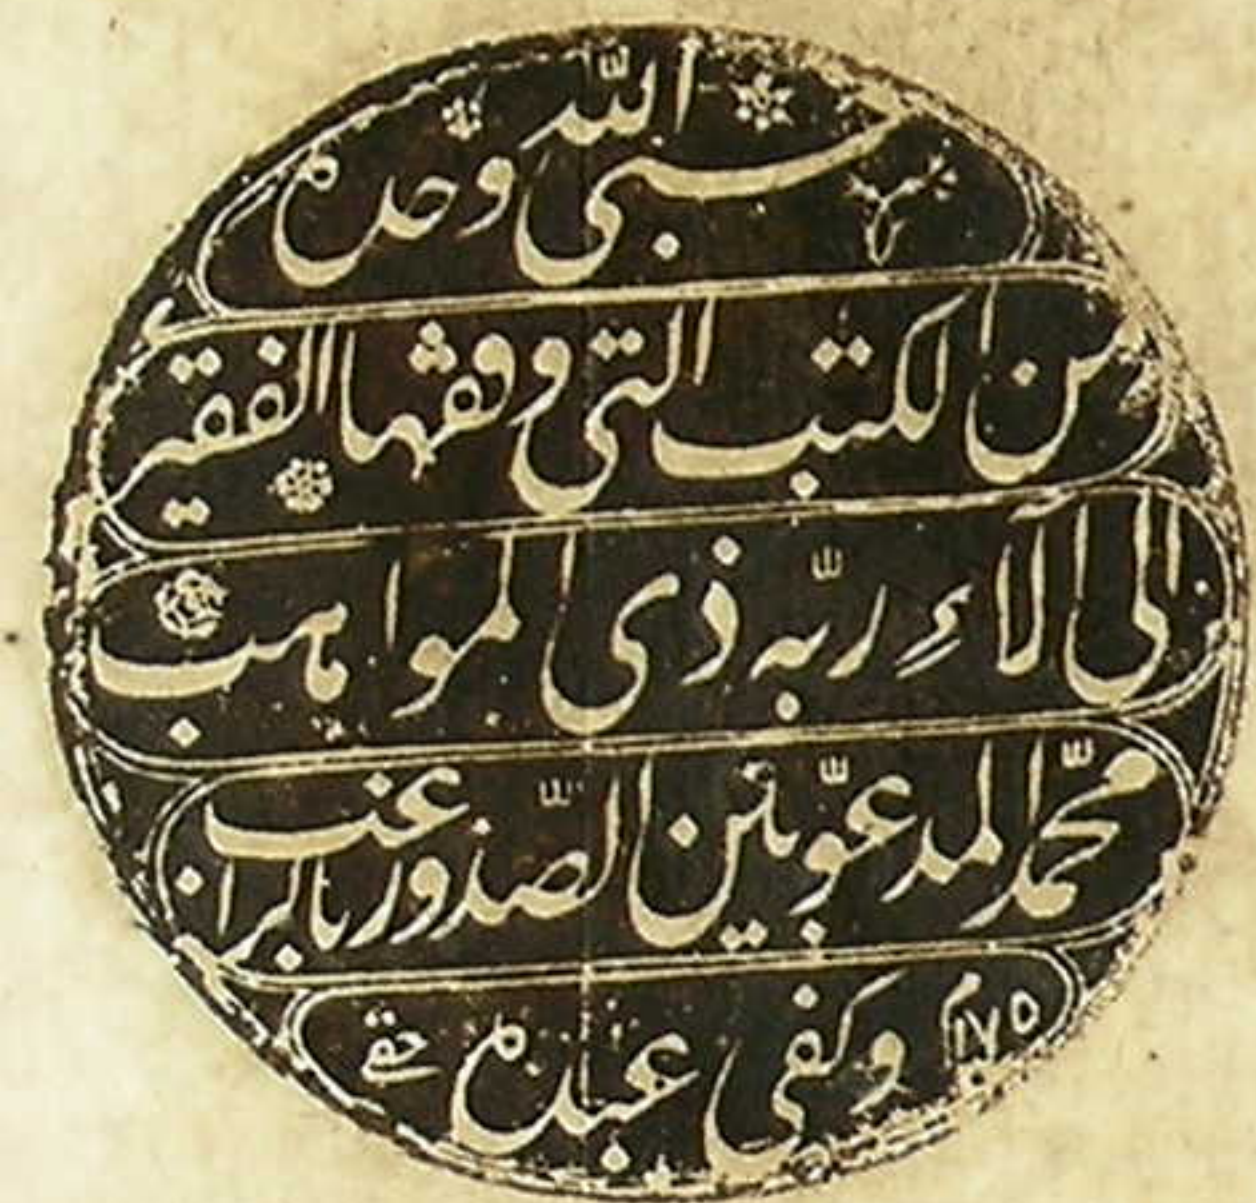 حسبى الله وحده
من الكتب التى وقفها الفقير
الى آلاءِ ربّه ذى المواهب
محمّد المدعوّ بين الصّدور بالراغب
وكفى عبده حقى